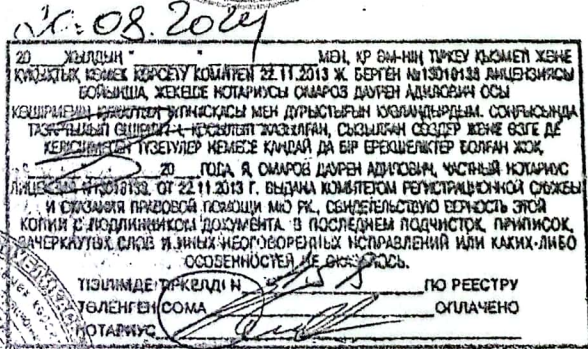 .08.2024
20 ЖЫЛДЫҢ " " МЕН, ҚР ӘМ-НІҢ ТІРКЕУ ҚЫЗМЕТІ ЖӘНЕ
ҚҰҚЫҚТЫҚ КӨМЕК КӨРСЕТУ КОМИТЕТІ 22.11.2013 Ж. БЕРГЕН №13018133 ЛИЦЕНЗИЯСЫ
БОЙЫНША, ЖЕКЕШЕ НОТАРИУСЫ ОМАРОВ ДАУРЕН АДИЛОВИЧ ОСЫ
КӨШІРМЕНІҢ ТҮПНҰСҚАСЫ МЕН ДУРЫСТЫҒЫН КУӘЛАНДЫРДЫМ. СОҢҒЫСЫНДА
ҚОСЫЛЫП ЖАЗЫЛҒАН, СЫЗЫЛҒАН СӨЗДЕР ЖӘНЕ ӨЗГЕ ДЕ
КЕЛІСІЛМЕГЕН ТҮЗЕТУЛЕР НЕМЕСЕ ҚАНДАЙ ДА БІР ЕРЕКШЕЛІКТЕР БОЛҒАН ЖОҚ.
20 ГОДА, Я, ОМАРОВ ДАУРЕН АДИЛОВИЧ, ЧАСТНЫЙ НОТАРИУС
ОТ 22.11.2013 Г. ВЫДАНА КОМИТЕТОМ РЕГИСТРАЦИОННОЙ СЛУЖБЫ
И ОКАЗАНИЯ ПРАВОВОЙ ПОМОЩИ МЮ РК, СВИДЕТЕЛЬСТВУЮ ВЕРНОСТЬ ЭТОЙ
КОПИИ С ПОДЛИННИКОМ ДОКУМЕНТА. В ПОСЛЕДНЕМ ПОДЧИСТОК, ПРИПИСОК,
ЗАЧЕРКНУТЫХ СЛОВ И ИНЫХ НЕОГОВОРЕННЫХ ИСПРАВЛЕНИЙ ИЛИ КАКИХ-ЛИБО
ОСОБЕННОСТЕЙ НЕ ОКАЗАЛОСЬ.
ТІЗІЛІМДЕ ТІРКЕЛДІ N ПО РЕЕСТРУ
ТӨЛЕНГЕН СОМА ОПЛАЧЕНО
НОТАРИУС